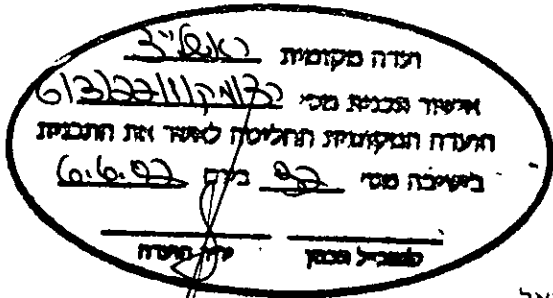 ועדה מקומית ראשל"צ
אישור תכנית מס׳ רצ/מק/1/22/3/6
הועדה המקומית החליטה לאשר את התכנית
בישיבה מס׳ ביום
סמנכ״ל תכנון יו״ר הועדה